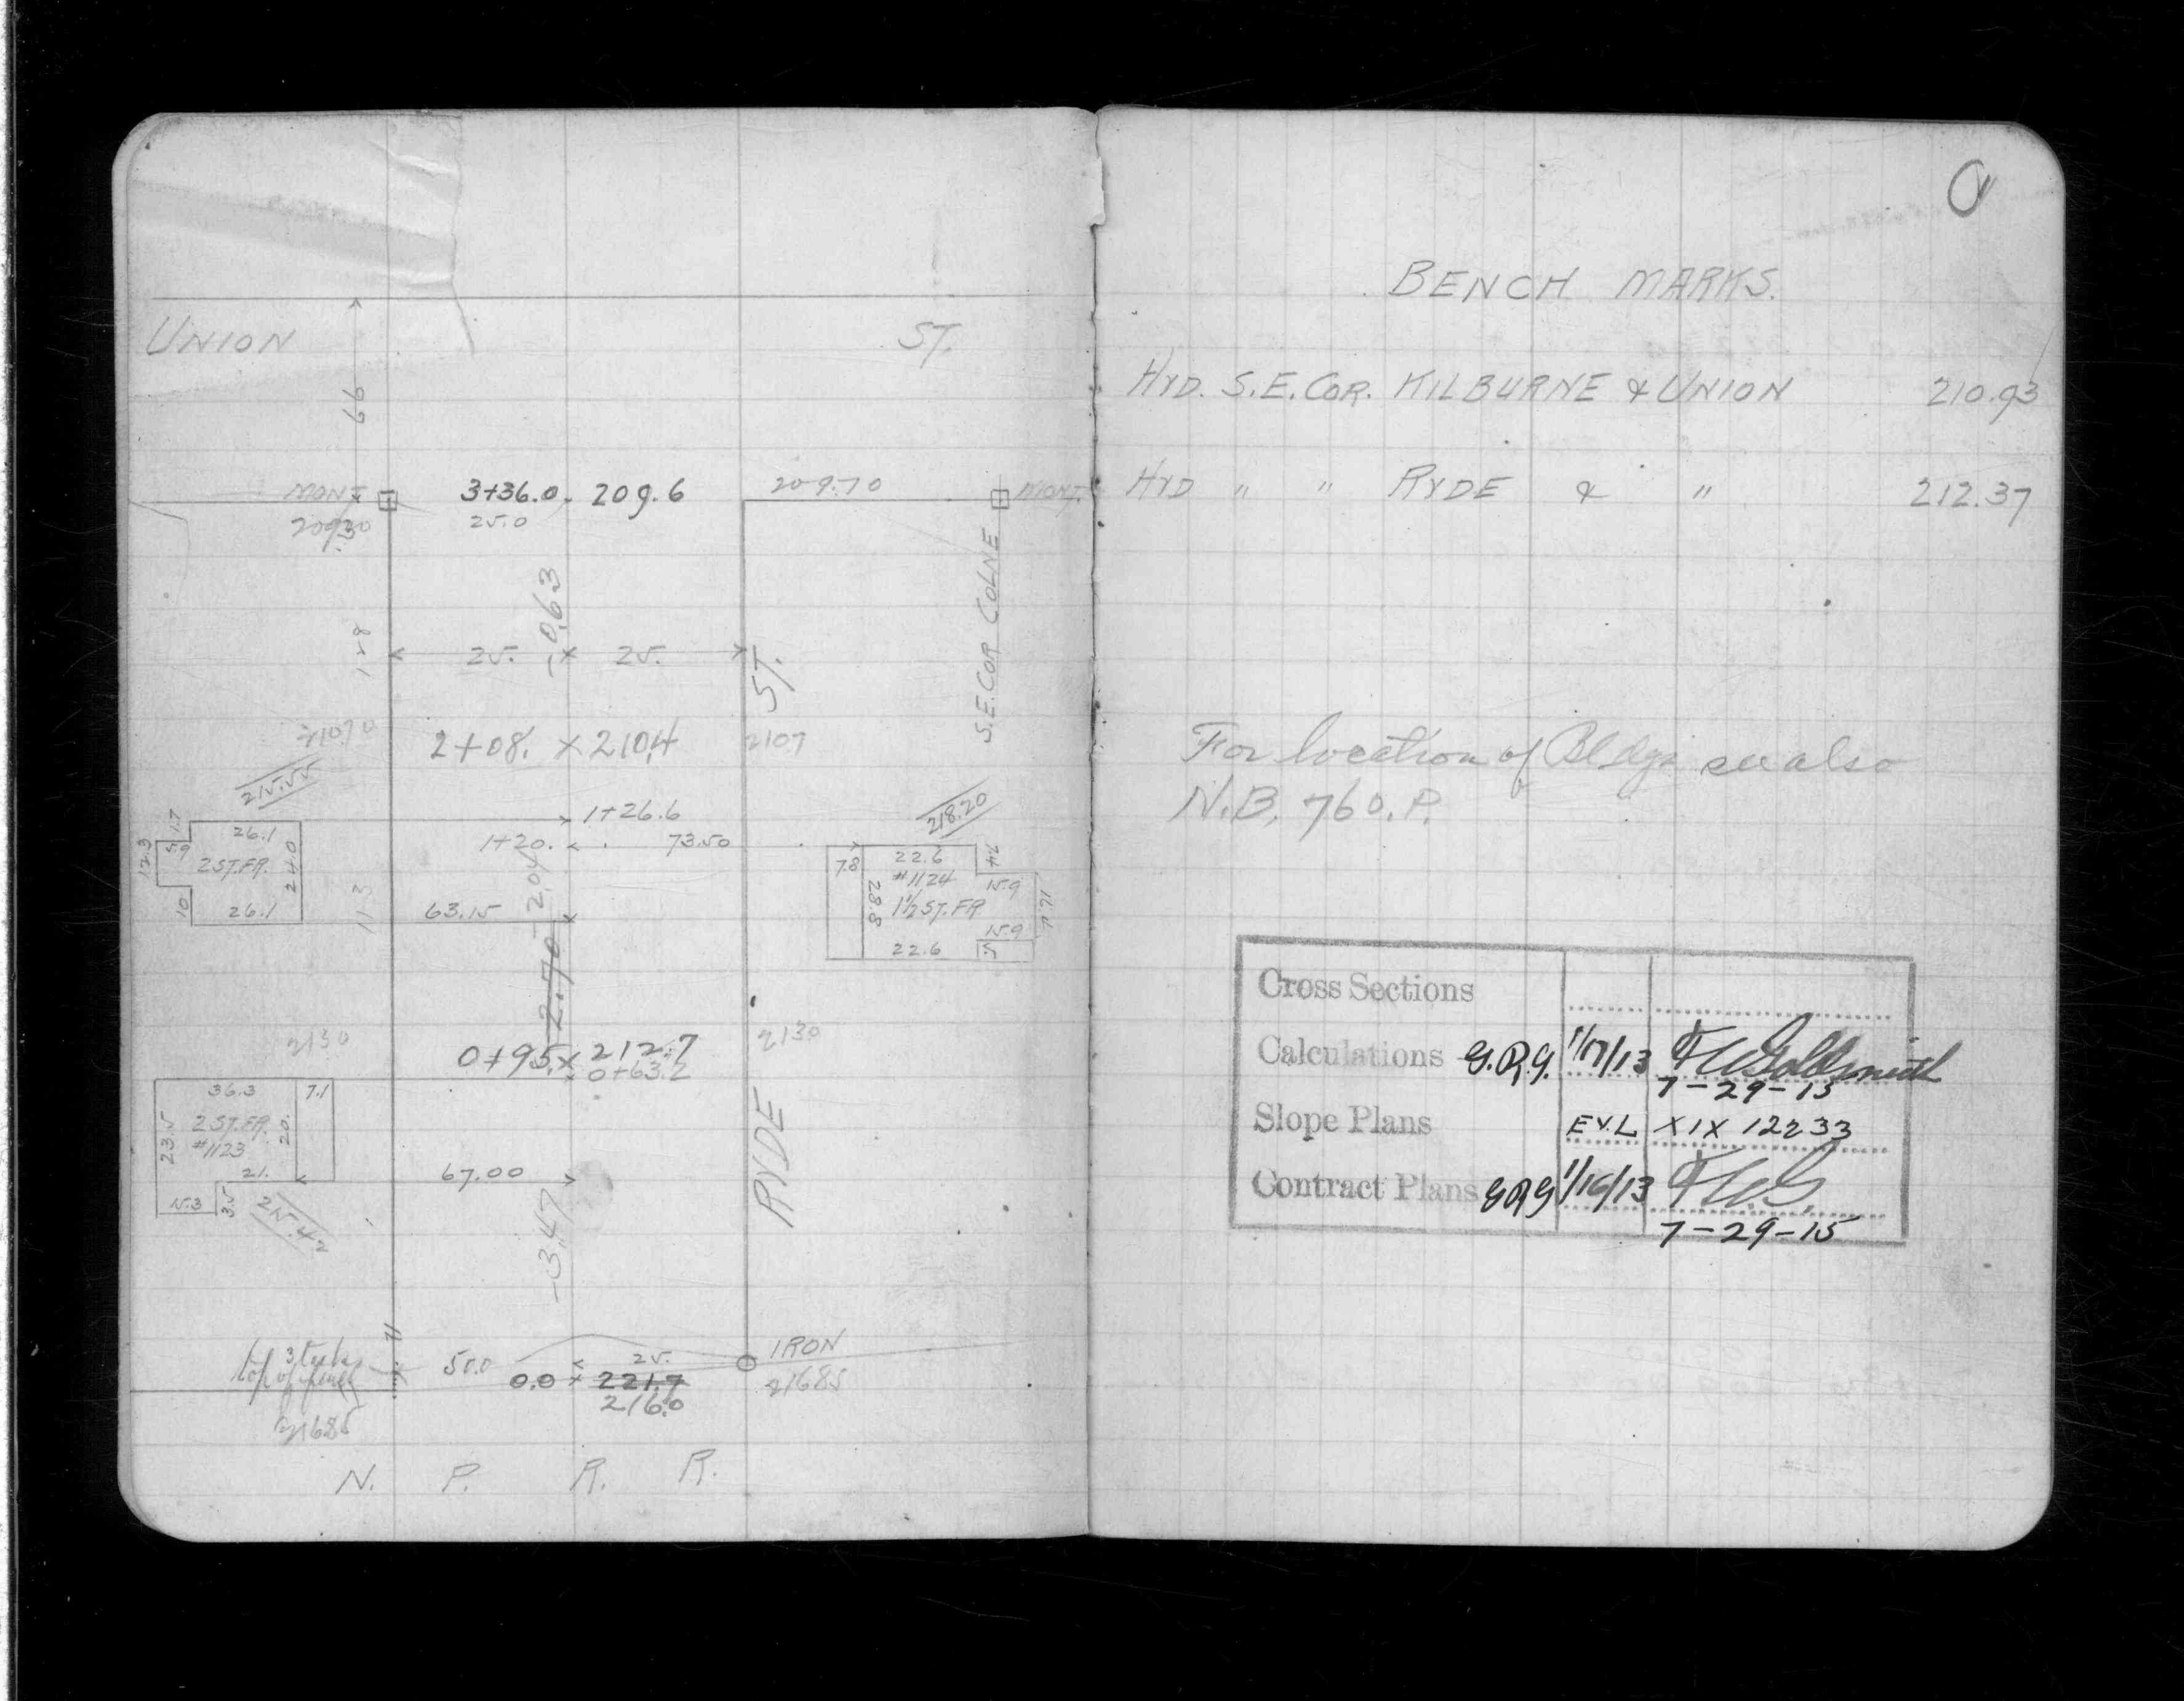 UNION ST.
66
MONT. 3+36.0 209.6 209.70 MONT.
25.0
-0.63
S.E. COR COLNE
128 25. 25.
ST.
210.70
2+08. × 210.4 210.7
215.55
1+26.6
218.20
1+20. 73.50
1.7
26.1
12.3 5.9
2 ST. FR. 24.0
10 26.1
113
63.15
2.04
2.70
7.8 22.6
#1124
28.8 1½ ST. FR.
15.9
15.9
22.6
213.0 0+95. × 212.7 213.0
0+63.2
36.3 7.1
23.5 2 ST. FR. 20.
#1123
21.
15.3 3.5
215.42
67.00
RYDE
-3.47
50.0 25. IRON
0.0 × 221.7 216.85
216.0
216.85
N. P. R. R.
BENCH MARKS.
HYD. S.E. COR. KILBURNE & UNION 210.93
HYD " " RYDE & " 212.37
For location of Bldgs see also
N.B. 760. P.
Cross Sections
Calculations G.R.G. 1/17/13 F W Goldsmith
7-29-15
Slope Plans E.V.L XIX 12233
Contract Plans GRG 1/16/13 F.W.G.
7-29-15